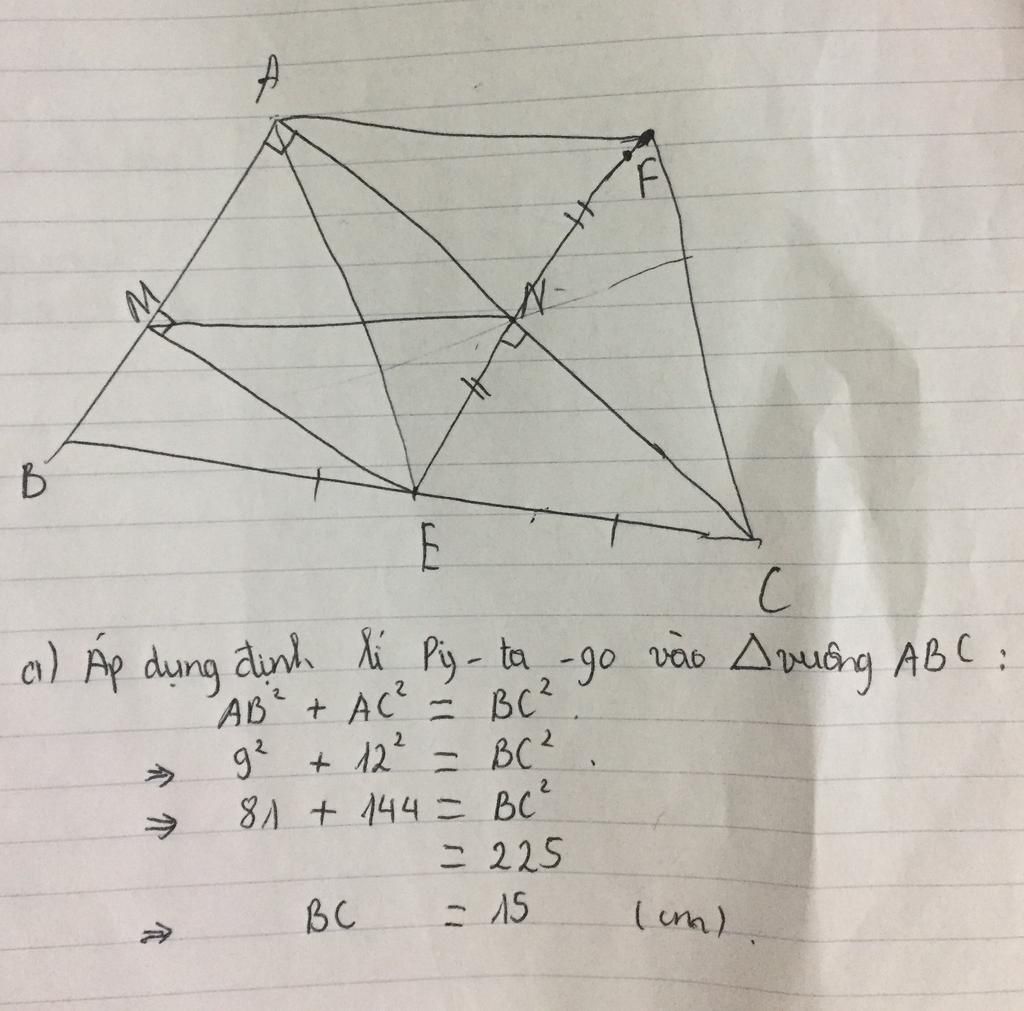 A
F
M
N
B
E
C
a) Áp dụng định lí Py-ta-go vào △vuông ABC:
AB² + AC² = BC².
⇒ 9² + 12² = BC².
⇒ 81 + 144 = BC²
= 225
⇒ BC = 15 (cm).